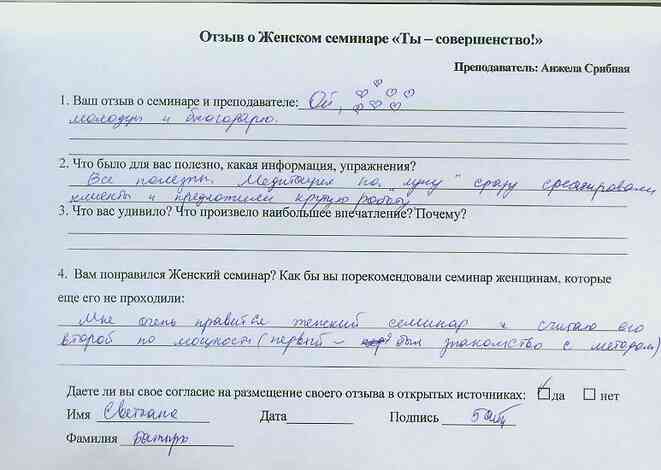 Отзыв о Женском семинаре «Ты – совершенство!»
Преподаватель: Анжела Срибная
1. Ваш отзыв о семинаре и преподавателе: Ой,
молодцы и благодарю.
2. Что было для вас полезно, какая информация, упражнения?
Все полезны. Медитация на "луну" сразу среагировали
клиенты и предложили крутую работу
3. Что вас удивило? Что произвело наибольшее впечатление? Почему?
4. Вам понравился Женский семинар? Как бы вы порекомендовали семинар женщинам, которые
еще его не проходили:
Мне очень нравится женский семинар и считаю его
второй по мощности (первый – был знакомство с методом)
Даете ли вы свое согласие на размещение своего отзыва в открытых источниках: да нет
Имя Светлана Дата Подпись
Фамилия